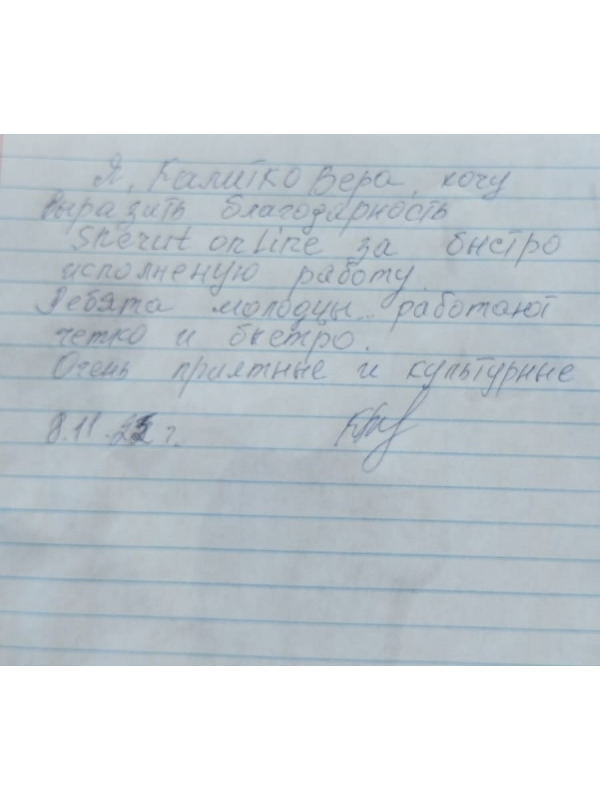 Я, Калитко Вера, хочу
выразить благодарность
Sherut online за быстро
исполненую работу.
Ребята молодцы.. работают
четко и быстро.
Очень приятные и культурные
8.11. г.